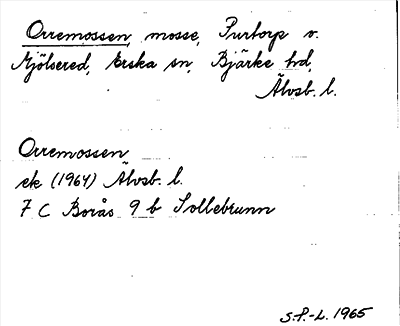 Orremossen, mosse, Purtorp o.
Mjölsered, Erska sn, Bjärke hd,
Älvsb. l.
Orremossen
ek (1964) Älvsb. l.
7 C Borås 9 b Sollebrunn
S.P.-L. 1965